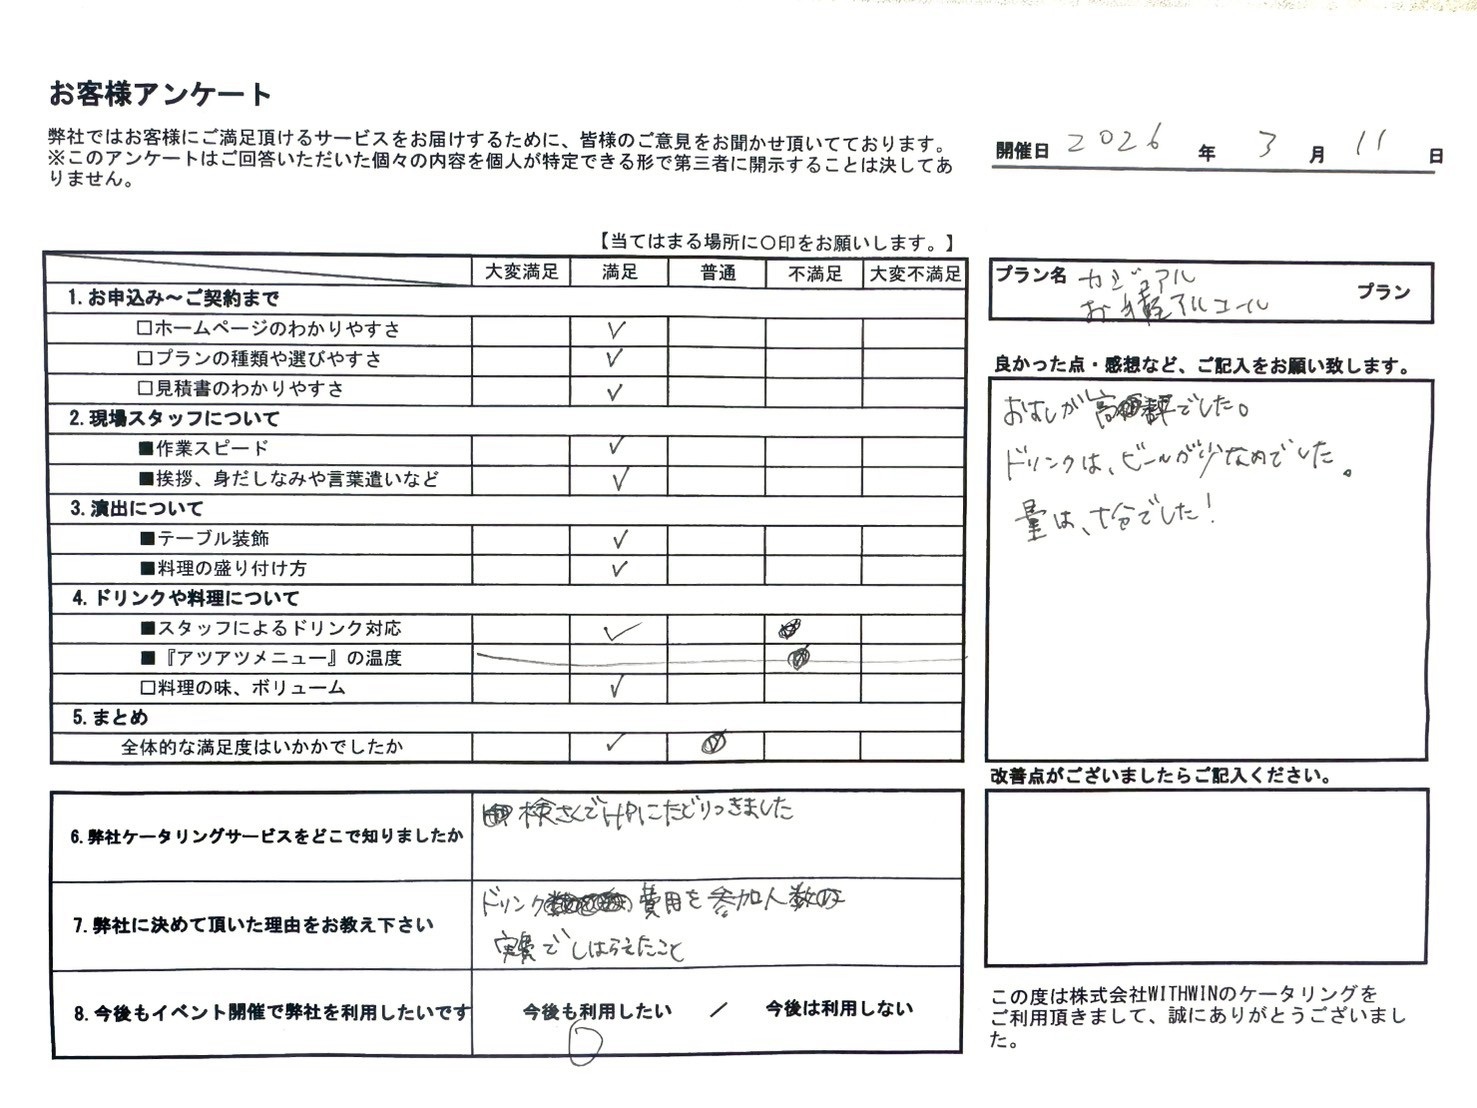 お客様アンケート
弊社ではお客様にご満足頂けるサービスをお届けするために、皆様のご意見をお聞かせ頂いてております。
※このアンケートはご回答いただいた個々の内容を個人が特定できる形で第三者に開示することは決してあ
りません。
開催日 2026 年 3 月 11 日
【当てはまる場所に〇印をお願いします。】
大変満足 満足 普通 不満足 大変不満足
1.お申込み～ご契約まで
□ホームページのわかりやすさ ✓
□プランの種類や選びやすさ ✓
□見積書のわかりやすさ ✓
2.現場スタッフについて
■作業スピード ✓
■挨拶、身だしなみや言葉遣いなど ✓
3.演出について
■テーブル装飾 ✓
■料理の盛り付け方 ✓
4.ドリンクや料理について
■スタッフによるドリンク対応 ✓
■『アツアツメニュー』の温度
□料理の味、ボリューム ✓
5.まとめ
全体的な満足度はいかかでしたか ✓
6.弊社ケータリングサービスをどこで知りましたか
検さくでHPにたどりつきました
7.弊社に決めて頂いた理由をお教え下さい
ドリンク費用を参加人数の
実費でしはらえたこと
8.今後もイベント開催で弊社を利用したいです
今後も利用したい ／ 今後は利用しない
プラン名 カジュアル
お手軽アルコール
プラン
良かった点・感想など、ご記入をお願い致します。
おすしが高評でした。
ドリンクは、ビールが少なめでした。
量は、十分でした!
改善点がございましたらご記入ください。
この度は株式会社WITHWINのケータリングを
ご利用頂きまして、誠にありがとうございまし
た。